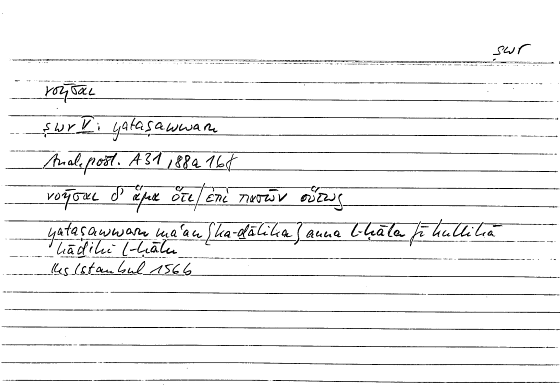 ṣwr
νοῆσαι
ṣwr V: yataṣawwara
Anal. post. A31, 88a 16f
νοῆσαι δ' ἅμα ὅτι/ἐπὶ πασῶν οὕτως
yataṣawwara ma'an {ka-ḏālika} anna l-ḥāla fī kullihā
hāḏihi l-ḥālu
Hs Istanbul 1566